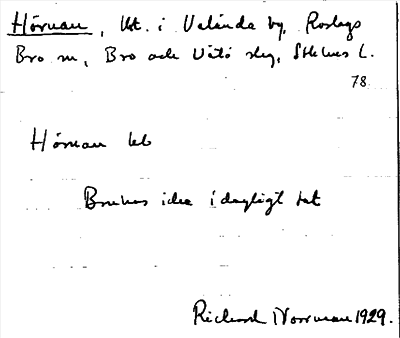 Hörnan, Ut. i Valånda by, Roslags
Bro sn, Bro och Vätö skg, Sthlms L.
78
Hörnan
Brukas icke i dagligt tal
Richard Norrman 1929.